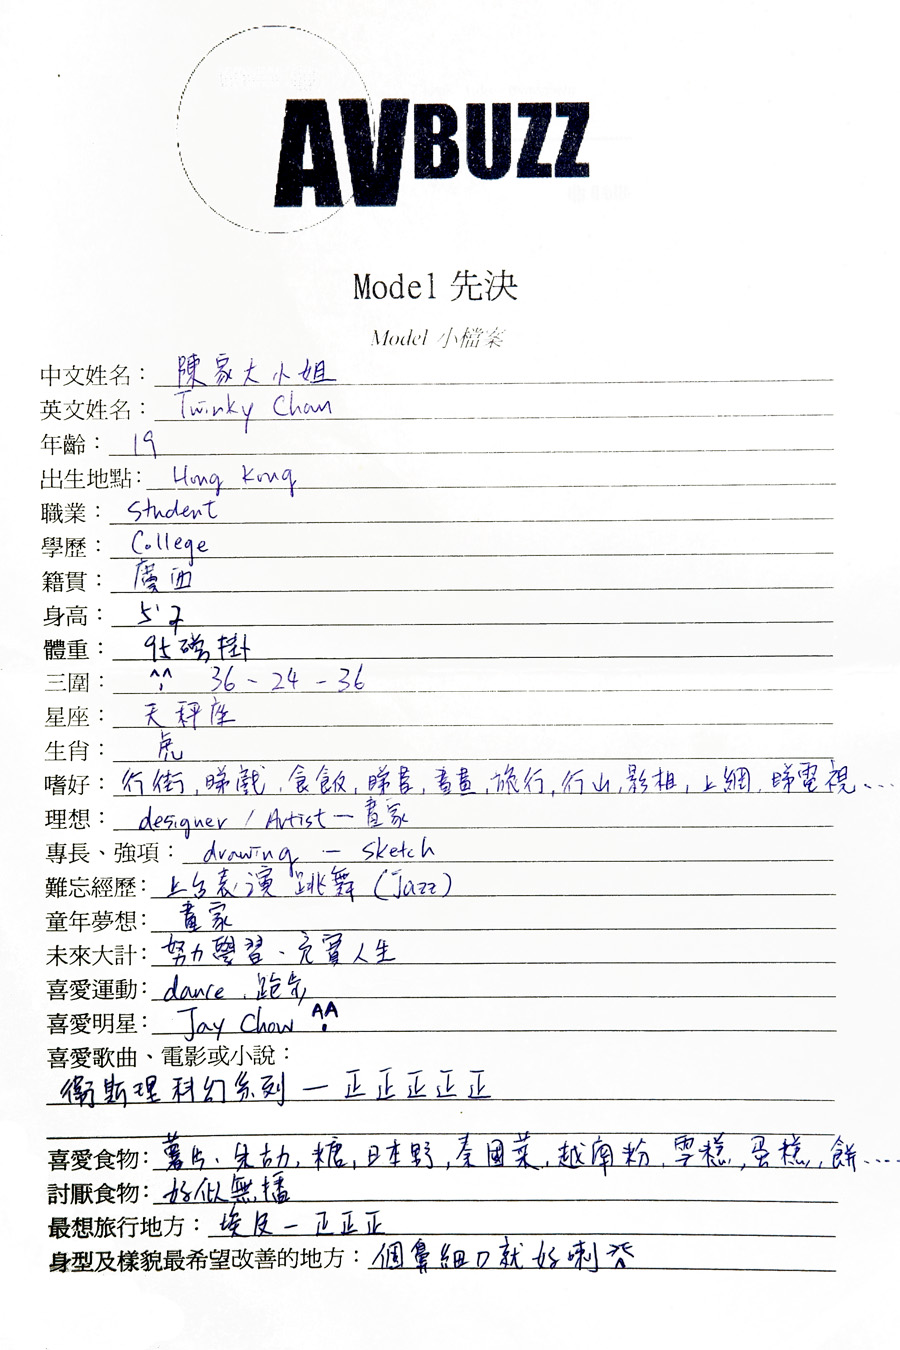 AVBUZZ
Model 先決
Model 小檔案
中文姓名： 陳家大小姐
英文姓名： Twinky Chan
年齡： 19
出生地點： Hong Kong
職業： Student
學歷： College
籍貫： 廣西
身高： 5'7
體重： 95磅掛
三圍： ^^ 36 - 24 - 36
星座： 天秤座
生肖： 虎
嗜好： 行街, 睇戲, 食飯, 睇書, 畫畫, 旅行, 行山, 影相, 上網, 睇電視...
理想： designer / Artist — 畫家
專長、強項： drawing — sketch
難忘經歷： 上台表演 跳舞 (Jazz)
童年夢想： 畫家
未來大計： 努力學習、充實人生
喜愛運動： dance, 跑步
喜愛明星： Jay Chow ^^
喜愛歌曲、電影或小說：
衛斯理科幻系列 — 正正正正正
喜愛食物： 薯片、朱古力, 糖, 日本野, 泰國菜, 越南粉, 雪糕, 蛋糕, 餅....
討厭食物： 好似無播
最想旅行地方： 埃及 — 正正正
身型及樣貌最希望改善的地方： 個鼻細D就好喇